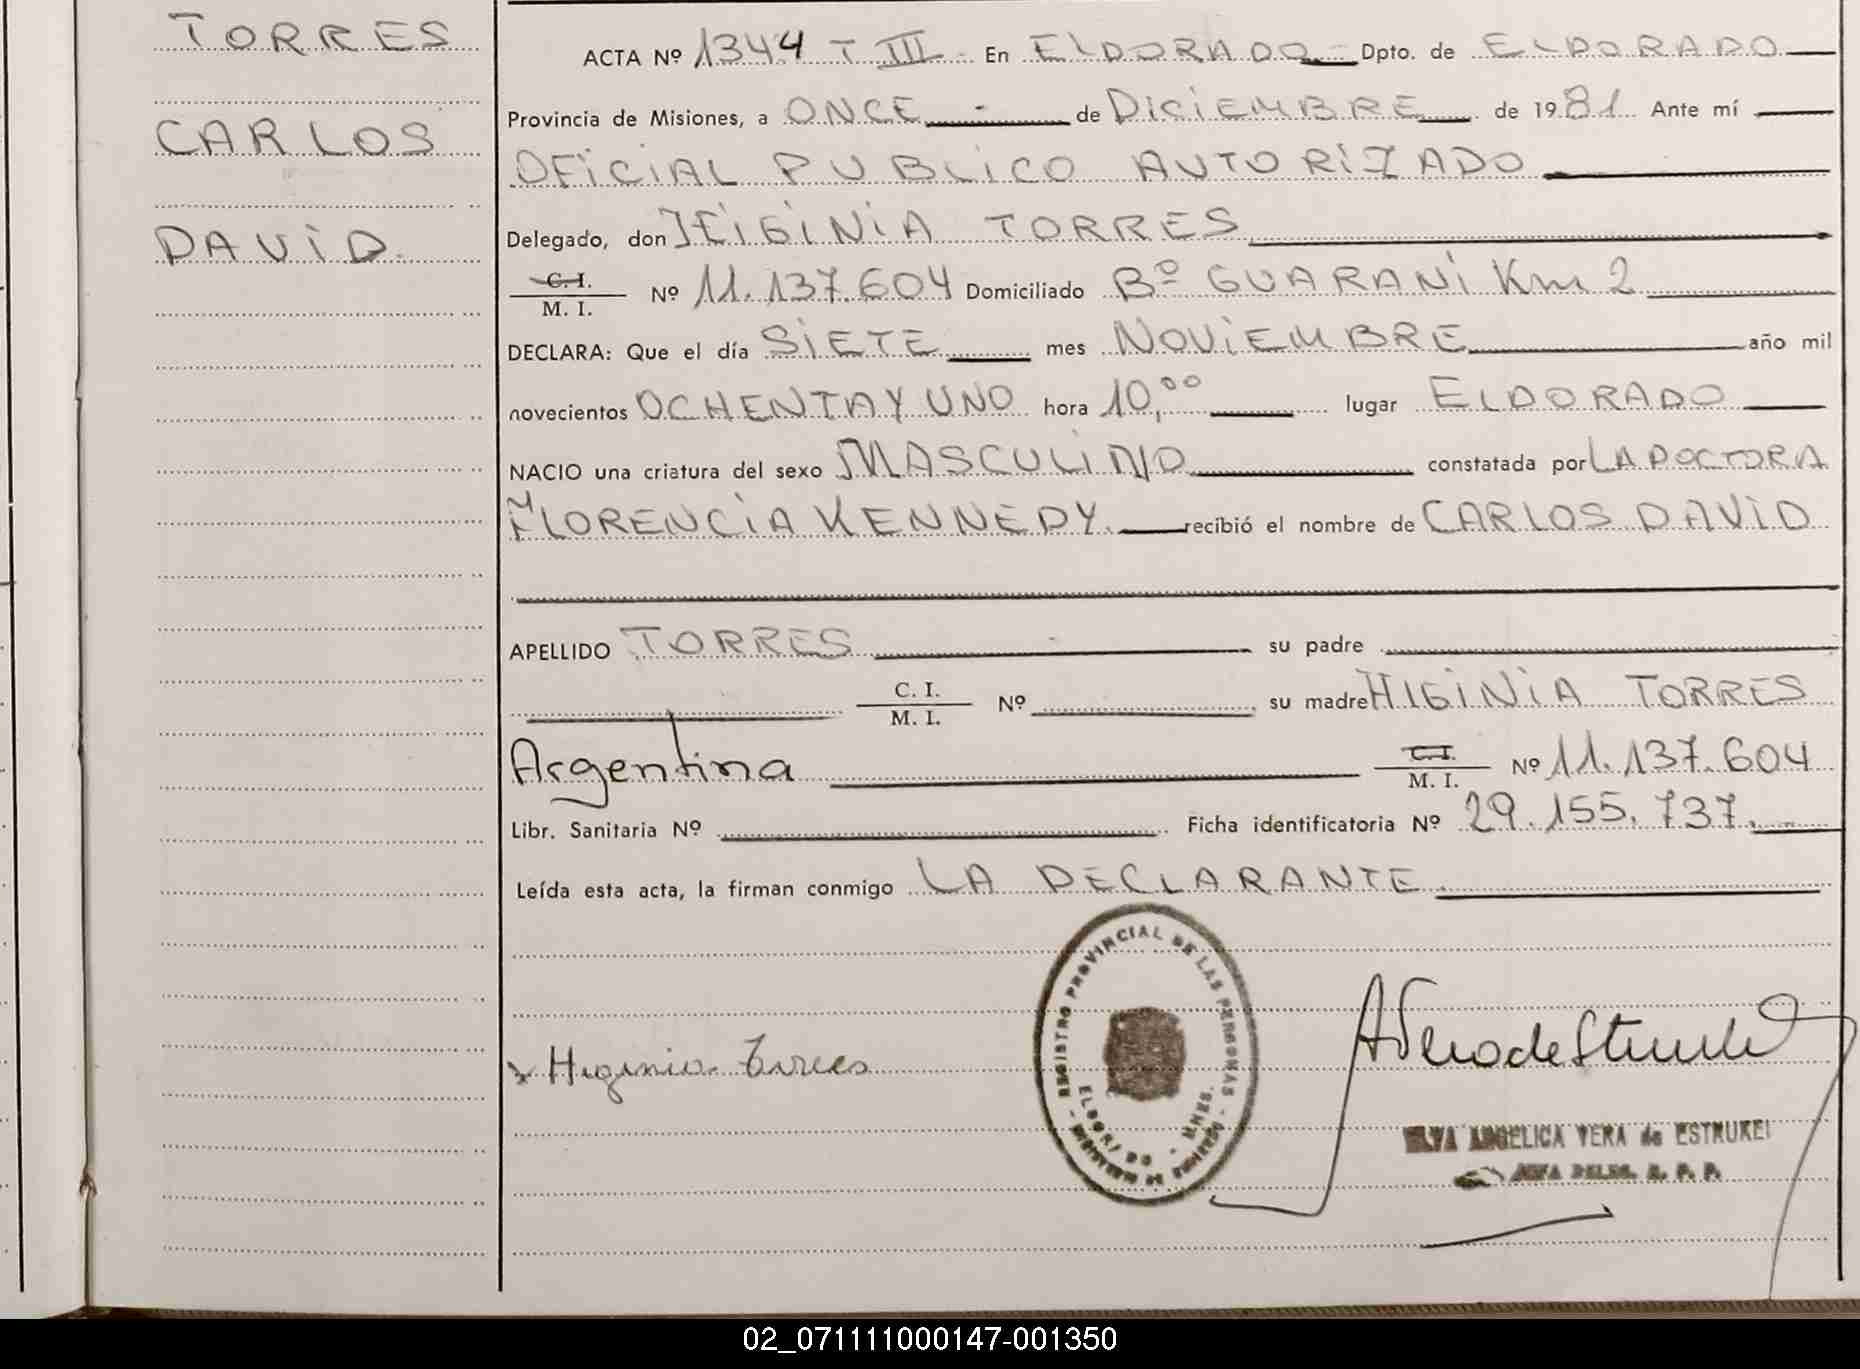 TORRES
CARLOS
DAVID
ACTA Nº 1344 T III En ELDORADO Dpto. de ELDORADO
Provincia de Misiones, a ONCE de DICIEMBRE de 1981 Ante mí
OFICIAL PUBLICO AUTORIZADO
Delegado, don HIGINIA TORRES
C. I.
M. I.
Nº 11.137.604 Domiciliado Bº GUARANI Km 2
DECLARA: Que el día SIETE mes NOVIEMBRE año mil
novecientos OCHENTA Y UNO hora 10,00 lugar ELDORADO
NACIO una criatura del sexo MASCULINO constatada por LA DOCTORA
FLORENCIA KENNEDY. recibió el nombre de CARLOS DAVID
APELLIDO TORRES su padre
C. I.
M. I.
Nº su madre HIGINIA TORRES
Argentina C. I.
M. I.
Nº 11.137.604
Libr. Sanitaria Nº Ficha identificatoria Nº 29.155.737.
Leída esta acta, la firman conmigo LA DECLARANTE.
REGISTRO PROVINCIAL DE LAS PERSONAS
ELDORADO - MNES.
x Higinia Torres
ANGELICA VERA de ESTRUKEL
02_071111000147-001350